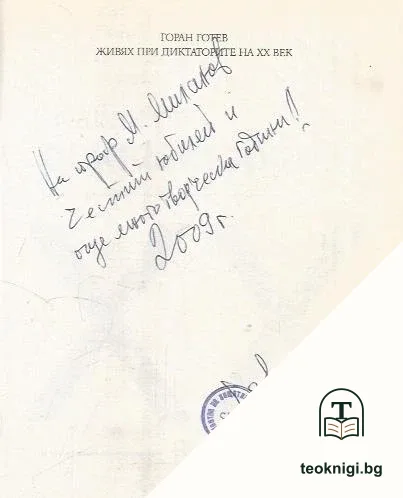 ГОРАН ГОТЕВ
ЖИВЯХ ПРИ ДИКТАТОРИТЕ НА XX ВЕК
На проф М. Миланов
Честит юбилей и
още много творчески години!
2009 г.
T
teoknigi.bg